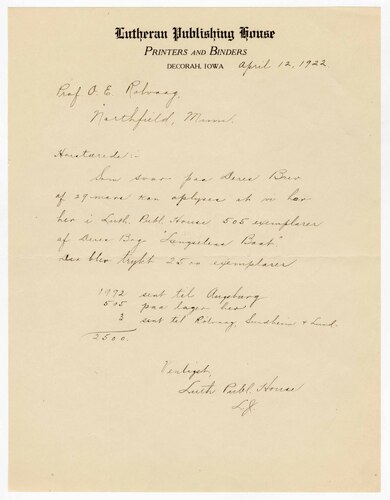 Lutheran Publishing House
PRINTERS AND BINDERS
DECORAH, IOWA April 12, 1922
Prof O. E. Rolvaag,
Northfield, Minn.
Høistærede:-
Som svar paa Deres Brev
af 29-mars kan oplyses at vi har
her i Luth. Publ. House 505 exemplarer
af Deres Bog "Længselens Baat"
Der blev trykt 2500 exemplarer
1992 sent til Augsburg
505 paa lager her
3 sent til Rolvaag, Sundheim & Lund.
2500.
Venligst,
Luth Publ. House
LJ